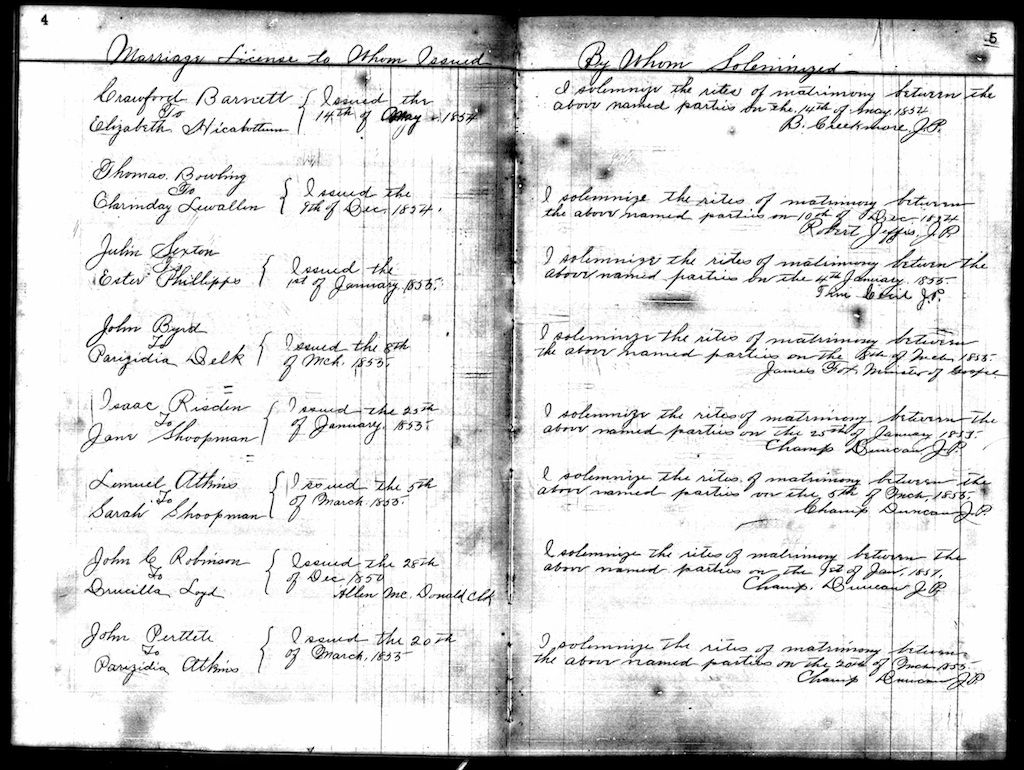 4
Marriage License to Whom Issued
Crawford Barnett
To
Elizabeth Hicabottum
Issued the
14th of May 1854
Thomas Bowling
To
Clarinday Lewallen
Issued the
9th of Dec. 1854.
Julin Sexton
To
Ester Phillipps
Issued the
1st of January, 1855.
John Byrd
To
Parizidia Delk
Issued the 8th
of Mch. 1855.
Isaac Risden
To
Jane Shoopman
Issued the 25th
of January. 1855.
Lemuel Atkins
To
Sarah Shoopman
Issued the 5th
of March, 1855.
John C. Robinson
To
Drucilla Loyd
Issued the 28th
of Dec. 1850
Allen Mc. Donald Clk
John Perttete
To
Parizidia Atkins
Issued the 20th
of March, 1855
5
By Whom Soleminized
I solemnize the rites of matrimony between the
above named parties on the 14th of May 1854
B. Creekmore J.P.
I solemnize the rites of matrimony between
the above named parties on 10th of Dec. 1854
Robert Jeffrs, J.P.
I solemnize the rides of matrimony between the
above named parties on the 4th January 1855.
Cecil J.P.
I solemnize the rites of matrimony between
the above named parties on the 8th of Mch, 1855.
James Fox Minister of Gospel
I solemnize the rites of matrimony between the
above named parties on the 25th of January 1855.
Champ Duncan J.P.
I solemnize the rites of matrimony between the
above named parties on the 5th of Mch. 1855.
Champ Duncan J.P.
I solemnize the rites of matrimony between the
above named parties on the 1st of Jan. 1851.
Champ. Duncan J.P.
I solemnize the rites of matrimony between
the above named parties on the 20th of Mch. 1855
Champ Duncan J.P.